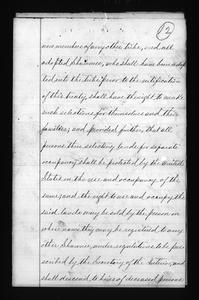 12
are members of any other tribe, and all
adopted Shawnees, who shall have been adop-
ted into the tribe prior to the ratification
of this treaty, shall have the right to make
such selections for themselves and their
families; and provided further, that all
persons thus selecting lands for separate
occupancy shall be protected by the United
States in the use and occupancy of the
same; and the right to use and occupy the
said lands may be sold by the person in
whose name they may be registered to any
other Shawnee, under regulations to be pre-
scribed by the Secretary of the Interior, and
shall descend to heirs of deceased persons